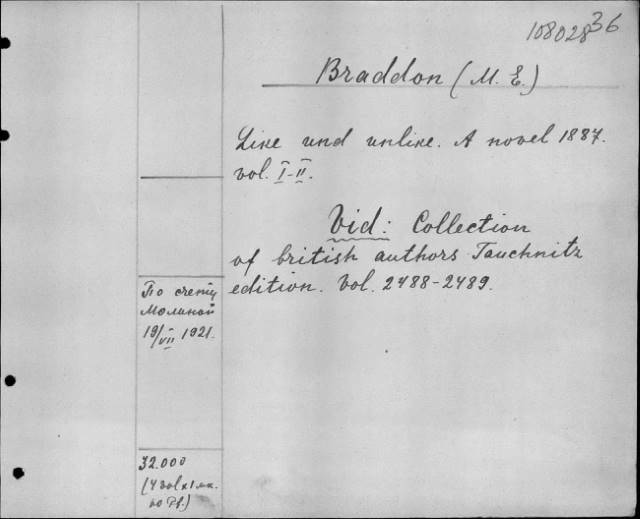 10802836
Braddon (M. E.)
Like und unlike. A novel 1887.
vol. I-II.
Vid: Collection
of british authors Tauchnitz
edition. Vol. 2488-2489.
По счету
Молиной
19/VII 1921.
32.000
(4 vol x 1 мк.
50 Pf.)